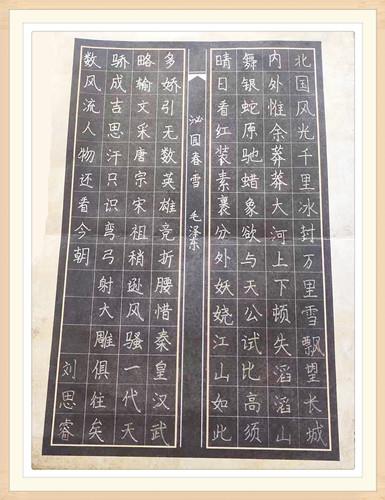 北国风光千里冰封万里雪飘望长城
内外惟余莽莽大河上下顿失滔滔山
舞银蛇原驰蜡象欲与天公试比高须
晴日看红装素裹分外妖娆江山如此
沁园春雪 毛泽东
多娇引无数英雄竞折腰惜秦皇汉武
略输文采唐宗宋祖稍逊风骚一代天
骄成吉思汗只识弯弓射大雕俱往矣
数风流人物还看今朝
刘思睿